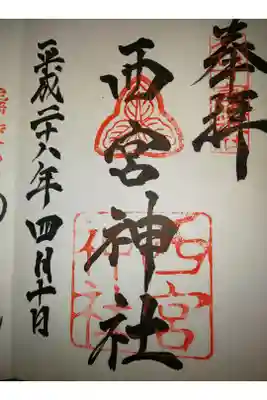 奉拝
西宮神社
西宮神社
平成二十八年四月十日